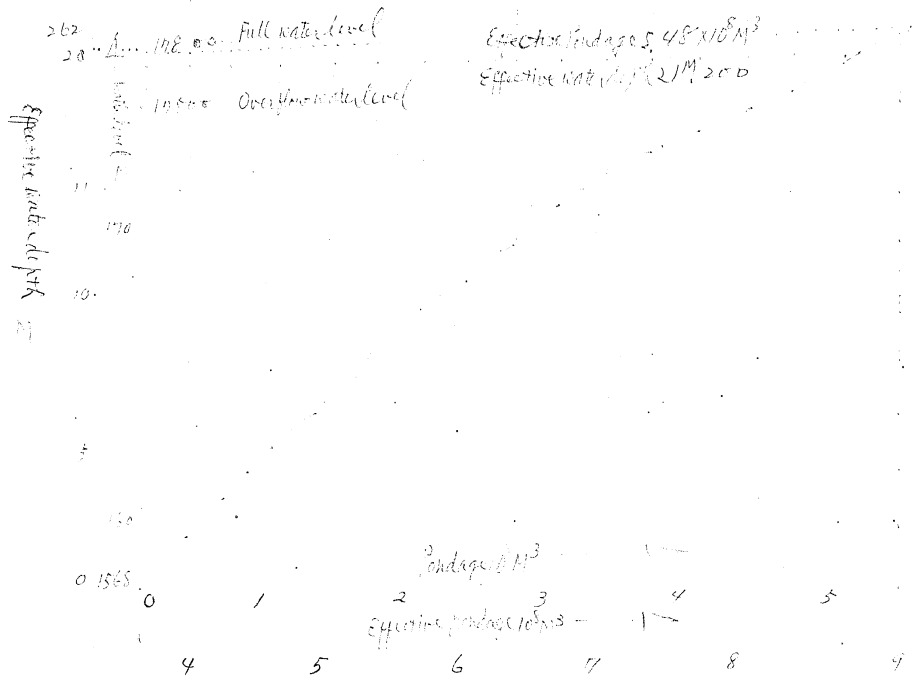 262
20
178.00 Full water level
Effective Pondage 5.48×10⁸M³
Effective water 21ᴹ200
Overflow water level
Effective water depth M
170
10
5
0 1568
Pondage M³
0 1 2 3 4 5
Effective pondage 10⁸M³
4 5 6 7 8 9